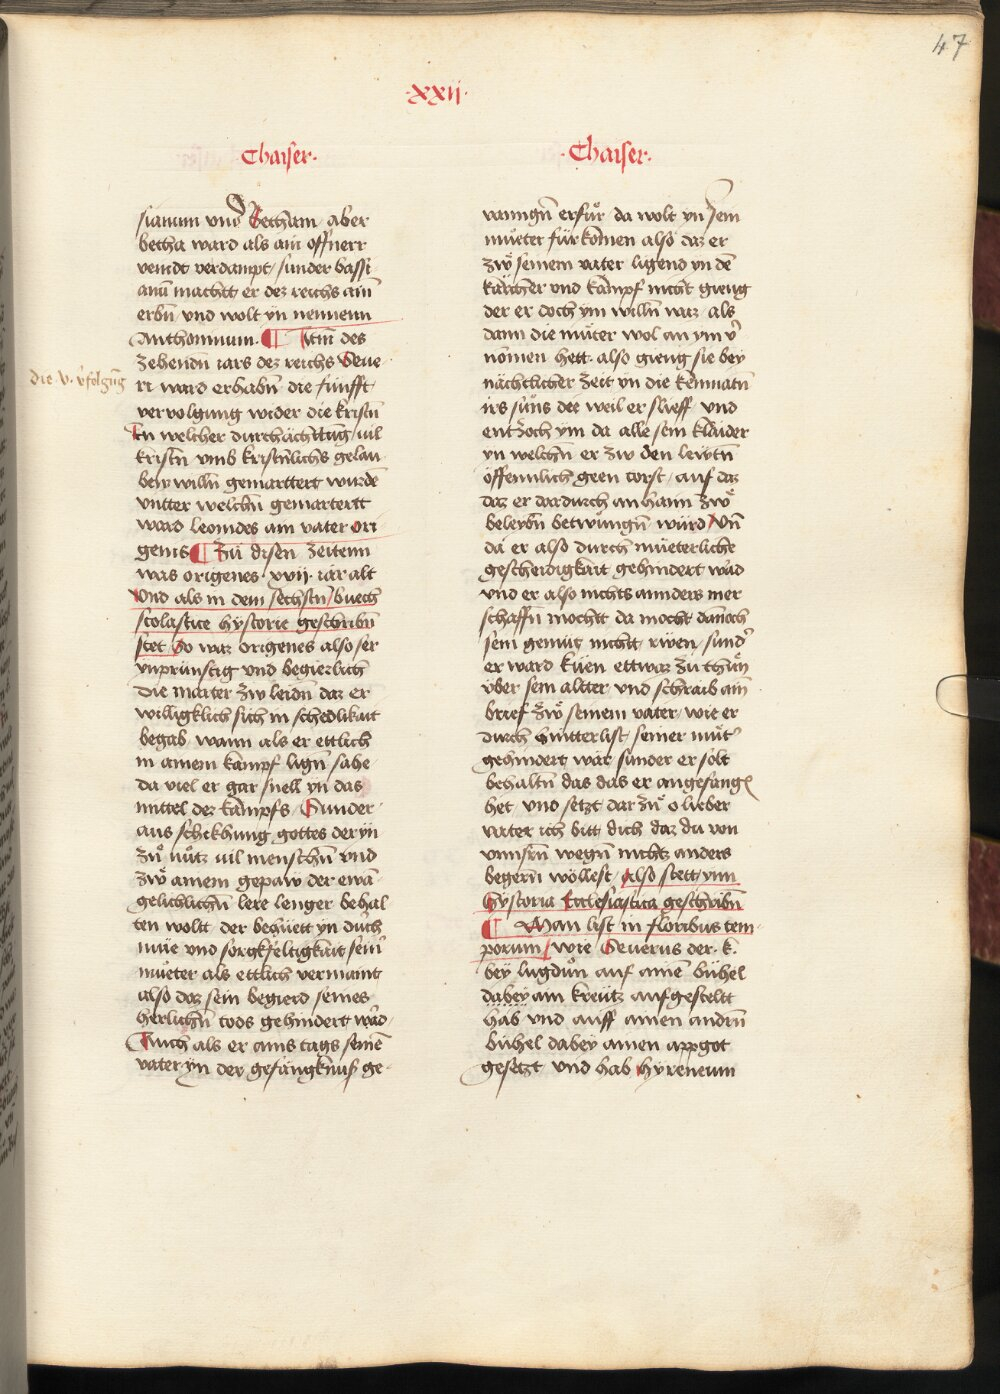 47
·xxij·
·Chaiser·
sianum und Getham / aber
betha ward als ain offnerr
veindt verdampt / sunder bassi
anū machtt er dez reichs ain
erbn̄ und wolt yn nennenn
Anthoninum · ¶ Itm̄ des
zehendn̄ iars dez reichs Seue-
ri ward erhabn̄ die fünfft
vervolgung wider die kristn̄
In welcher durchächttūg / vil
kristn̄ vmb kristnlichs gelau-
ben willn̄ gemarttert wurdē
vntter welchn̄ gemartertt
ward leonides ain vater ori
genis ¶ Zu disen zeitenn
was origenes · xvii · iar alt
Vnd als in dem sechstn̄ / buech
scolastice hystorie geschribn̄
stet / So waz origenes also ser
ynprünstig und begierlich
die marter zw leidn̄ daz er
willigklich sich in schedlikait
begab / wann als er ettlich
in ainem kampf lign̄ sahe
da viel er gar snell yn das
mittel dez kampfs / Sunder
aus schikhung gottes der yn
zů nůtz vil menschn̄ vnd
zwͦ ainem gepaw der ewā-
gelichlichn̄ lere lenger behal-
ten woltt der behüett yn durch
müe und sorgkfeltigkait seinr̄
můeter als ettlich vermaint
also daz sein begierd seines
herlichn̄ tods gehindert wād /
Auch als er ains tags seinē
vater yn der gefängknuß ge-
die v. v̄folgūg
·Chaiser·
vanngn̄ erfůr da wolt yn sein
můeter fürkömen also daz er
zwͦ seinem vater ligend yn dē
kärcher und kampf nicht gieng
der er doch ym willn̄ waz / als
dann die můter wol an ym v̄
nomen hett / also gieng sie bey
nächtlicher zeit yn die kemnatn̄
irs suns die weil er slieff / und
entzoch ym da alle sein klaider
yn welchn̄ er zw den lewtn̄
offennlich geen torst / auf daz
daz er dardurch anhaim zwͦ
beleybn̄ betwungn̄ würd / Vn̄
da er also durch müeterliche
gescheidigkait gehindert wād
und er also nichts annders mer
schaffn̄ mochtt da mocht dānoch
sein gemüt nicht rüen / sund̄
er ward küen ettwaz zu thůn
über sein altter und schraib ain
brief zwͦ seinem vater / wie er
durch hintterlist seiner můt̄
gehindert wär sunder er solt
behaltn̄ das das er angefangn̄
het / und setzt dar zů o lieber
vater ich bitt dich daz du von
vnnsrn̄ wegn̄ nichtz anders
begern̄ wöllest / Also stett ynn
hystoria Ecclesiastica geschribn̄
¶ Man list in floribus tem-
porum / wie Seuerus der · k ·
bey lugdůn auf ainē bühel
dabey ain kreütz aufgestellt
hab und auff ainen andrn̄
bühel dabey ainen appgot
gesetzt und hab hyreneum